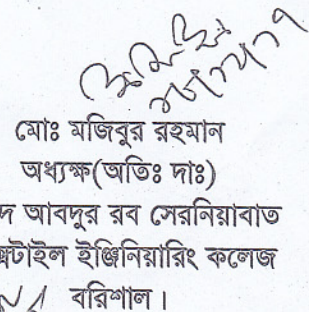 মোঃ মজিবুর রহমান
অধ্যক্ষ(অতিঃ দাঃ)
দ আবদুর রব সেরনিয়াবাত
ক্সটাইল ইঞ্জিনিয়ারিং কলেজ
বরিশাল।